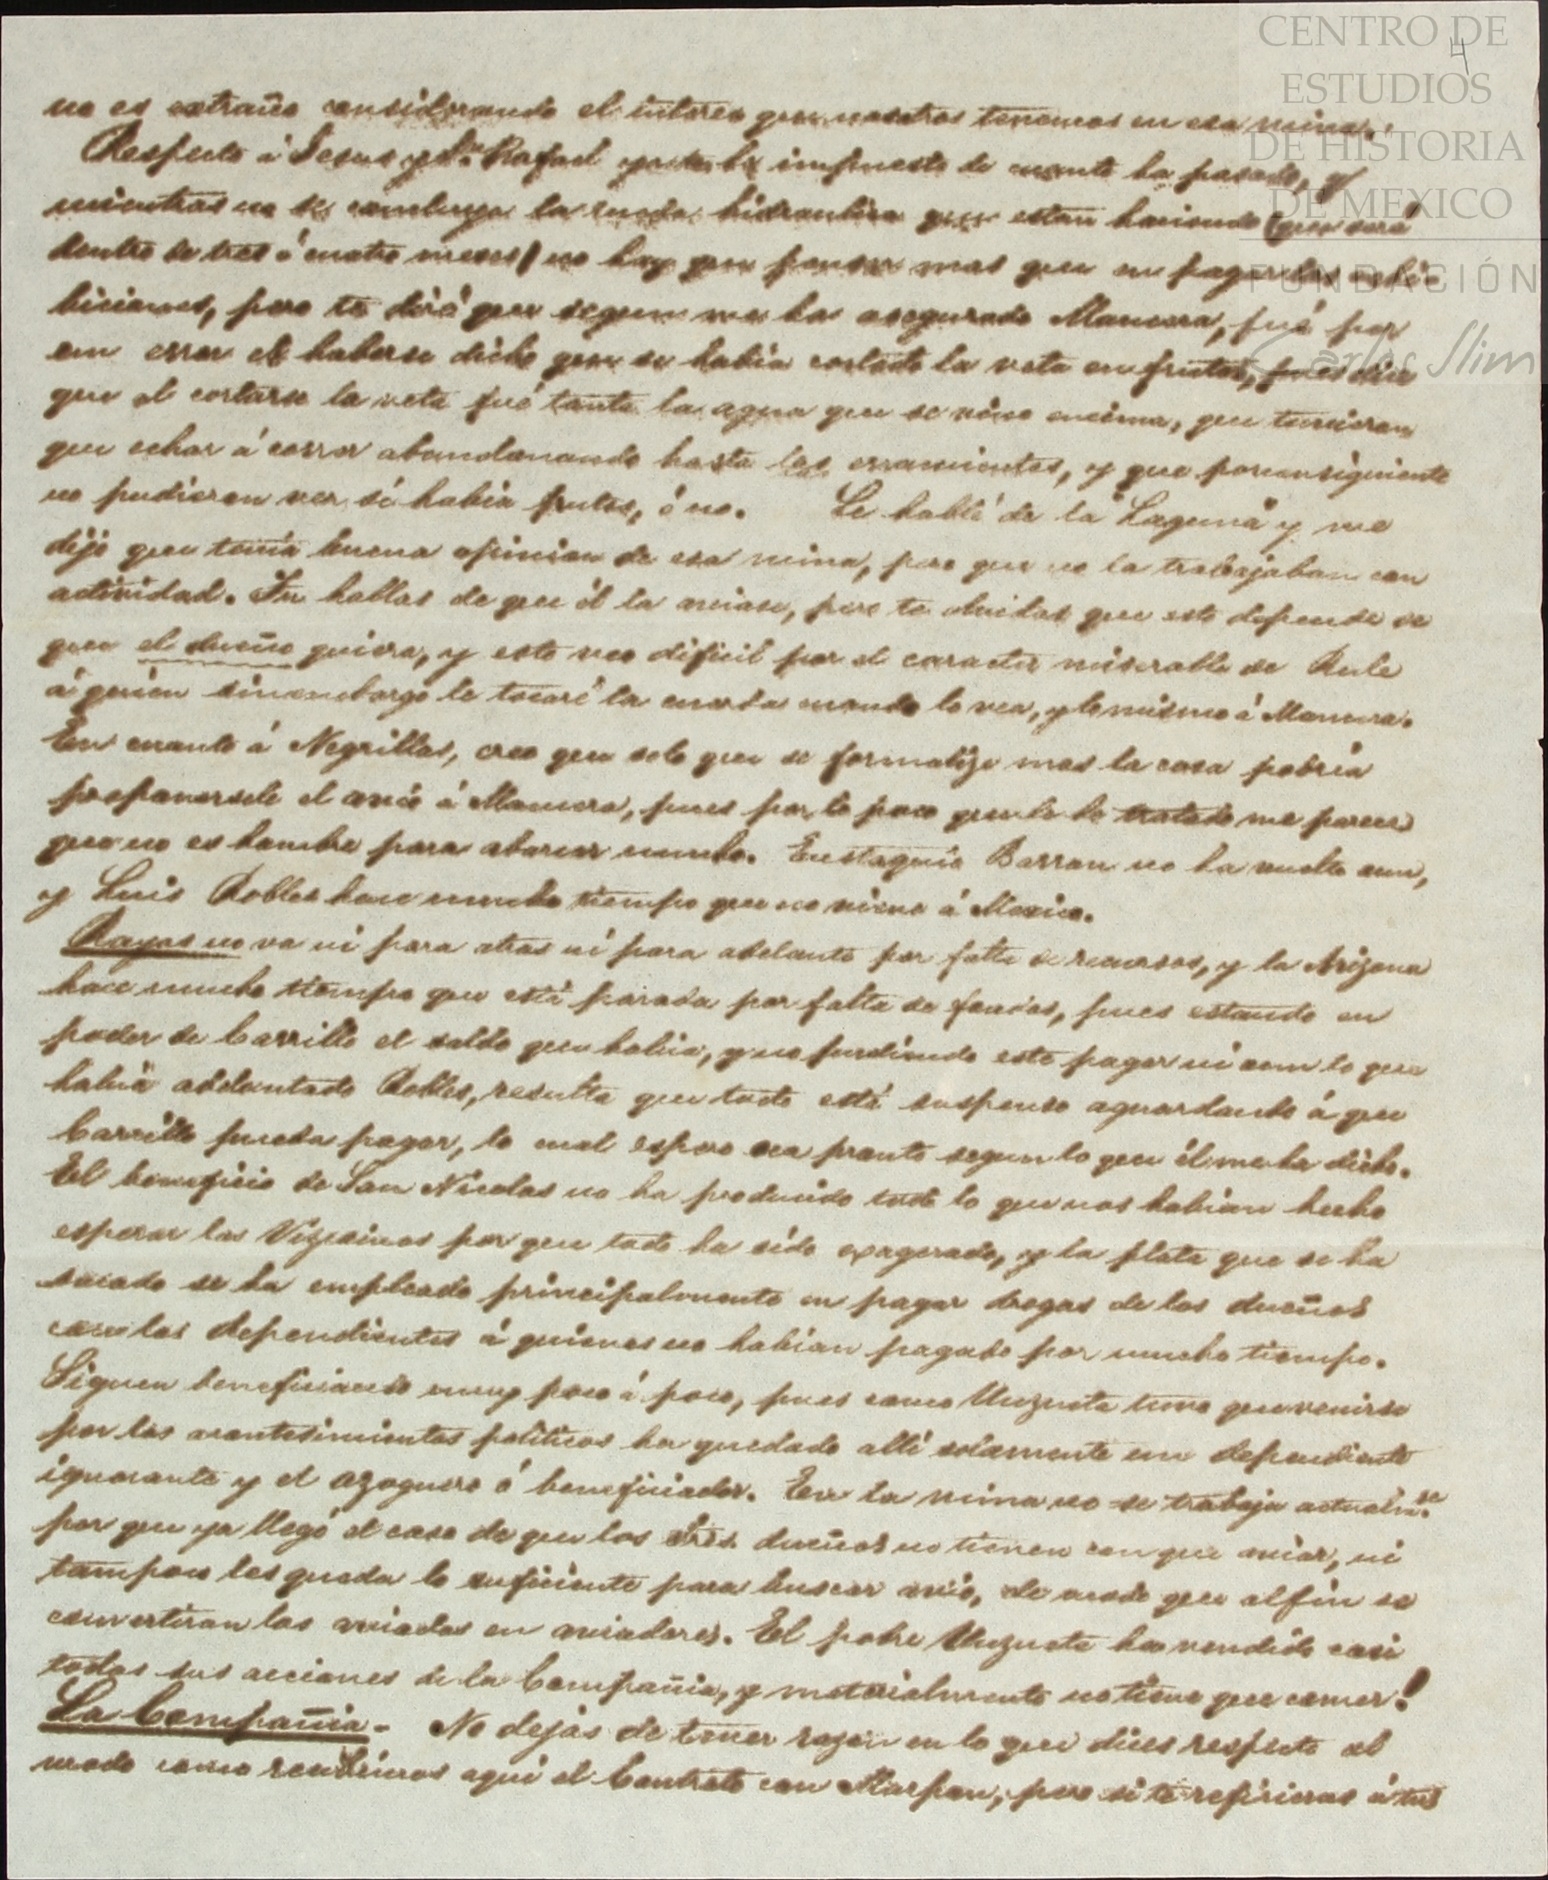 CENTRO DE
ESTUDIOS
DE HISTORIA
DE MEXICO
FUNDACIÓN
Carlos Slim
4
no es extraño considerando el interes que nosotros tenemos en esa mina.
Respecto á Jesus y Sn Rafael ya impuesto de cuanto ha pasado, y
mientras no se concluya la rueda hidraulica que estan haciendo (que será
dentro de tres ó cuatro meses) no hay que pensar mas que en pagar las
biciones, pero te diré que segun me ha asegurado Manuera, fué por
un error el haberse dicho que se habia cortado la veta en frutos, pues dice
que al cortarse la veta fué tanta la agua que se vino encima, que tuvieron
que echar á correr abandonando hasta las erramientas, y que porconsiguiente
no pudieron ver si habia frutos, ó no. Le hablé de la "Laguna" y me
dijo que tenia buena opinion de esa mina, pero que no la trabajaban con
actividad. Tu hablas de que él la aviase, pero te olvidas que esto depende de
que el dueño quiera, y esto veo dificil por el caracter miserable de Rule
á quien sinembargo le tocaré la cuerda cuando lo vea, y lo mismo á Manuera.
En cuanto á Negrillas, creo que solo que se formalize mas la cosa podria
proponersele el avio á Manuera, pues por lo poco que le he tratado me parece
que no es hombre para abarcar mucho. Eustaquio Barron no ha vuelto aun,
y Luis Robles hace mucho tiempo que no viene á Mexico.
Rayas no va ni para atras ni para adelante por falta de recursos, y la Arizona
hace mucho tiempo que está parada por falta de fondos, pues estando en
poder de Carrillo el saldo que habia, y no pudiendo este pagar ni aun lo que
habia adelantado Robles, resulta que todo está suspenso aguardando á que
Carrillo pueda pagar, lo cual espero sea pronto segun lo que él me ha dicho.
El beneficio de San Nicolas no ha producido todo lo que nos habian hecho
esperar los Vizcainos por que todo ha sido exagerado, y la plata que se ha
sacado se ha empleado principalmente en pagar drogas de los dueños
con los dependientes á quienes no habian pagado por mucho tiempo.
Siguen beneficiando muy poco á poco, pues como Unzueta tuvo que venirse
por los acontesimientos politicos ha quedado allí solamente un dependiente
ignorante y el azoguero ó beneficiador. En la mina no se trabaja actualm.te
por que ya llegó el caso de que los tres dueños no tienen con que aviar, ni
tampoco les queda lo suficiente para buscar avio, de modo que alfin se
convertiran los aviados en aviadores. El pobre Unzueta ha vendido casi
todas sus acciones de la Compañia, y materialmente no tiene que comer!
La Compañia.- No dejas de tener razon en lo que dices respecto al
modo como recibimos aqui el Contrato con Marpon, pero si te refirieras á tus